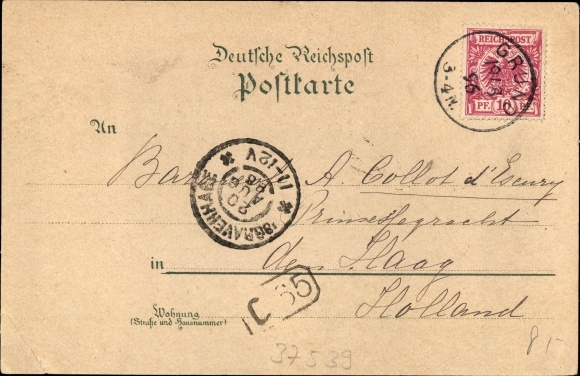 Deutsche Reichspost
Postkarte
REICHSPOST
10
PF. 10
3-4 N
An
'SGRAVENHAGE
20
AUG
11-12V
A. Collot d'Escury
Prinsessegracht
in den Haag
Holland
Wohnung
(Straße und Hausnummer)
C
65
37539
8,-